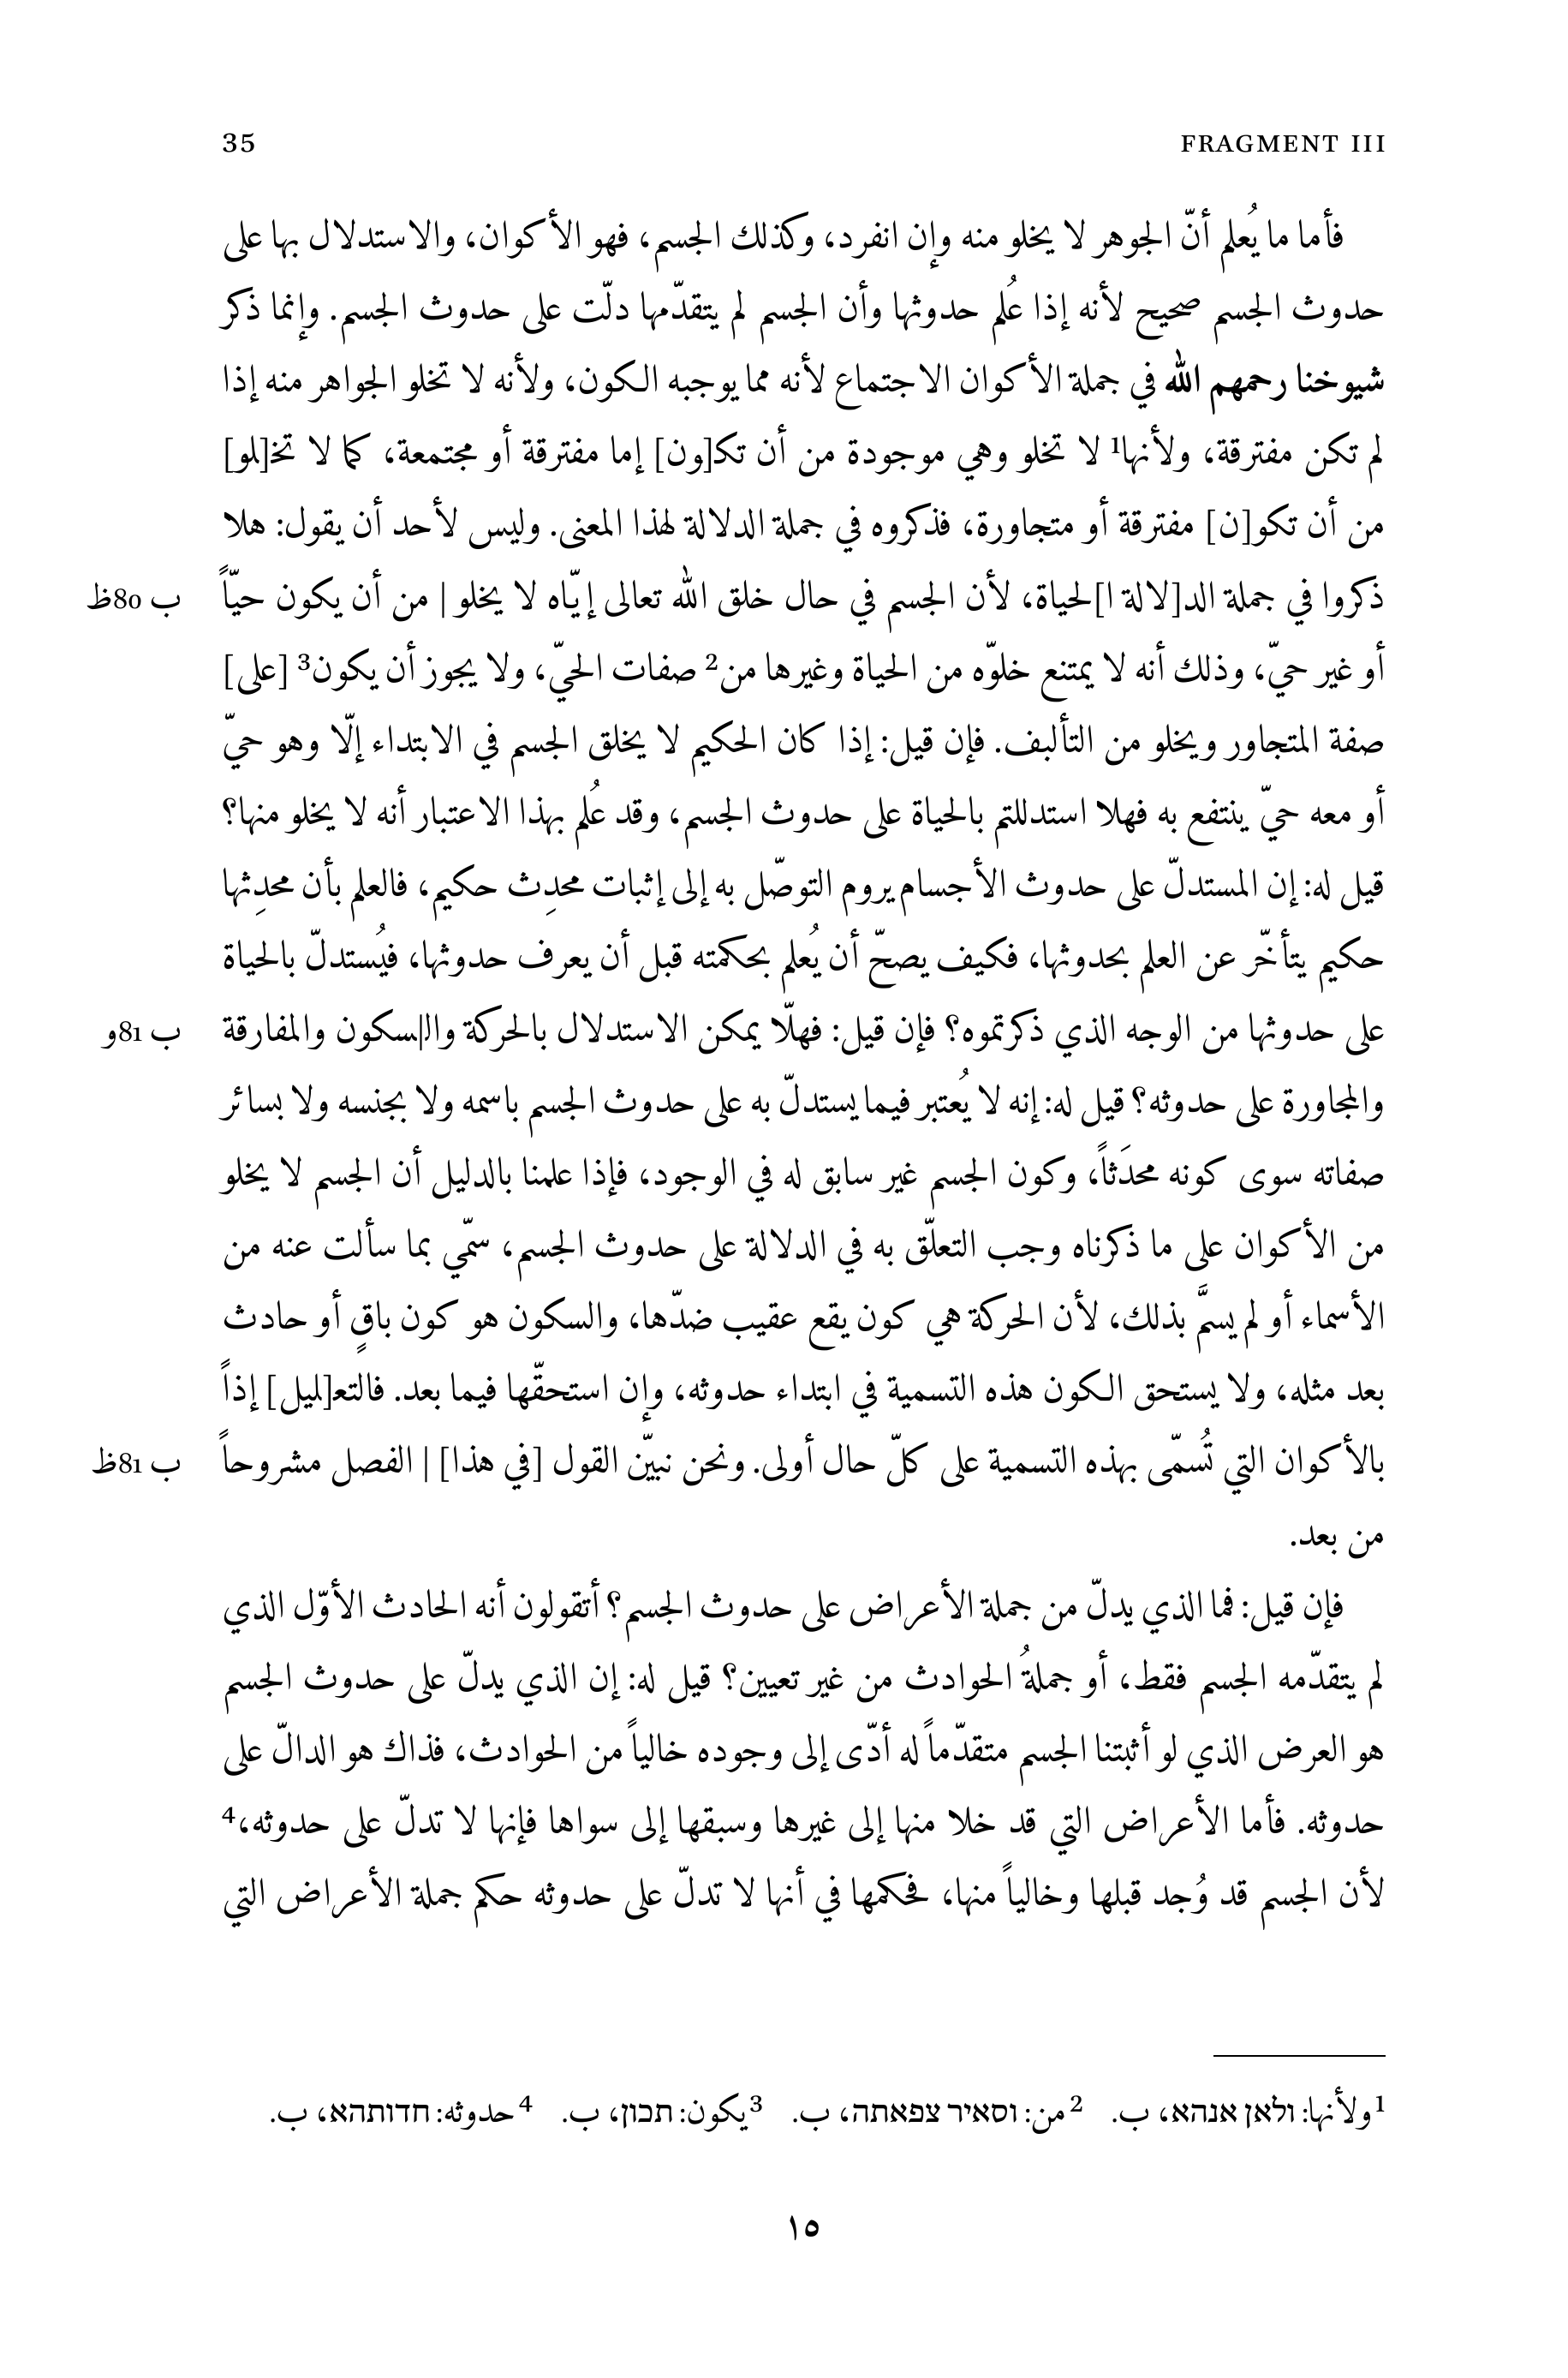 35
FRAGMENT III
فأما ما يُعلم أنّ الجوهر لا يخلو منه وإن انفرد، وكذلك الجسم، فهو الأكوان، والاستدلال بها على
حدوث الجسم صحيح لأنه إذا عُلم حدوثها وأن الجسم لم يتقدّمها دلّت على حدوث الجسم. وإنما ذكر
شيوخنا رحمهم الله في جملة الأكوان الاجتماع لأنه مما يوجبه الكون، ولأنه لا تخلو الجواهر منه إذا
لم تكن مفترقة، ولأنها¹ لا تخلو وهي موجودة من أن تكـ[ون] إما مفترقة أو مجتمعة، كما لا تخـ[لمو]
من أن تكو[ن] مفترقة أو متجاورة، فذكروه في جملة الدلالة لهذا المعنى. وليس لأحد أن يقول: هلا
ذكروا في جملة الد[لالة ا]لحياة، لأن الجسم في حال خلق الله تعالى إيّاه لا يخلو | من أن يكون حيّاً
ب 80ظ
أو غير حيّ، وذلك أنه لا يمتنع خلوّه من الحياة وغيرها من² صفات الحيّ، ولا يجوز أن يكون³ [على]
صفة المتجاور ويخلو من التأليف. فإن قيل: إذا كان الحكيم لا يخلق الجسم في الابتداء إلّا وهو حيّ
أو معه حيّ ينتفع به فهلا استدللتم بالحياة على حدوث الجسم، وقد عُلم بهذا الاعتبار أنه لا يخلو منها؟
قيل له: إن المستدلّ على حدوث الأجسام يروم التوصّل به إلى إثبات محدِث حكيم، فالعلم بأن محدِثها
حكيم يتأخّر عن العلم بحدوثها، فكيف يصحّ أن يُعلم بحكمته قبل أن يعرف حدوثها، فيُستدلّ بالحياة
على حدوثها من الوجه الذي ذكرتموه؟ فإن قيل: فهلّا يمكن الاستدلال بالحركة والـ|سكون والمفارقة
ب 81و
والمجاورة على حدوثه؟ قيل له: إنه لا يُعتبر فيما يستدلّ به على حدوث الجسم باسمه ولا بجنسه ولا بسائر
صفاته سوى كونه محدَثاً، وكون الجسم غير سابق له في الوجود، فإذا علمنا بالدليل أن الجسم لا يخلو
من الأكوان على ما ذكرناه وجب التعلّق به في الدلالة على حدوث الجسم، سمّي بما سألت عنه من
الأسماء أو لم يسمَّ بذلك، لأن الحركة هي كون يقع عقيب ضدّها، والسكون هو كون باقٍ أو حادث
بعد مثله، ولا يستحق الكون هذه التسمية في ابتداء حدوثه، وإن استحقّها فيما بعد. فالتعـ[ليل] إذاً
بالأكوان التي تُسمّى بهذه التسمية على كلّ حال أولى. ونحن نبيّن القول [في هذا] | الفصل مشروحاً
ب 81ظ
من بعد.
فإن قيل: فما الذي يدلّ من جملة الأعراض على حدوث الجسم؟ أتقولون أنه الحادث الأوّل الذي
لم يتقدّمه الجسم فقط، أو جملةُ الحوادث من غير تعيين؟ قيل له: إن الذي يدلّ على حدوث الجسم
هو العرض الذي لو أثبتنا الجسم متقدّماً له أدّى إلى وجوده خالياً من الحوادث، فذاك هو الدالّ على
حدوثه. فأما الأعراض التي قد خلا منها إلى غيرها وسبقها إلى سواها فإنها لا تدلّ على حدوثه،⁴
لأن الجسم قد وُجد قبلها وخالياً منها، فحكمها في أنها لا تدلّ على حدوثه حكم جملة الأعراض التي
¹ ولأنها: ולאן אנהא، ب. ² من: וסאיר צפאתה، ب. ³ يكون: תכון، ب. ⁴ حدوثه: חדותהא، ب.
١٥